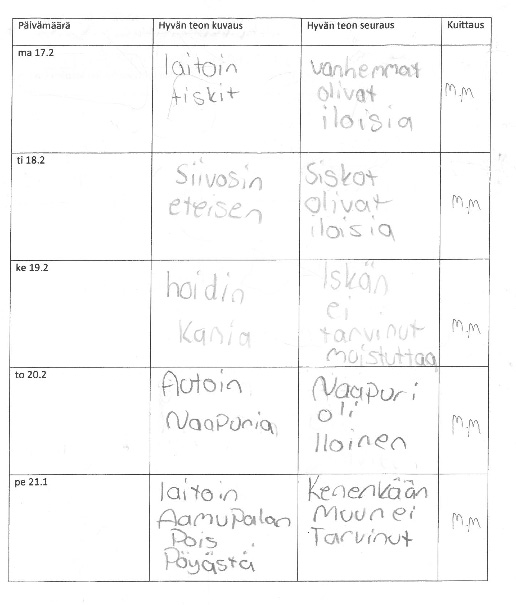 Päivämäärä Hyvän teon kuvaus Hyvän teon seuraus Kuittaus
ma 17.2
laitoin
tiskit
vanhemmat
olivat
iloisia
M,M
ti 18.2
Siivosin
eteisen
Siskot
olivat
iloisia
M,M
ke 19.2
hoidin
Kania
Iskän
ei
tarvinut
muistuttaa
M,M
to 20.2
Autoin
Naapuria
Naapuri
oli
Iloinen
M,M
pe 21.1
laitoin
Aamupalan
Pois
Pöyästä
Kenenkään
Muun ei
Tarvinut
M,M